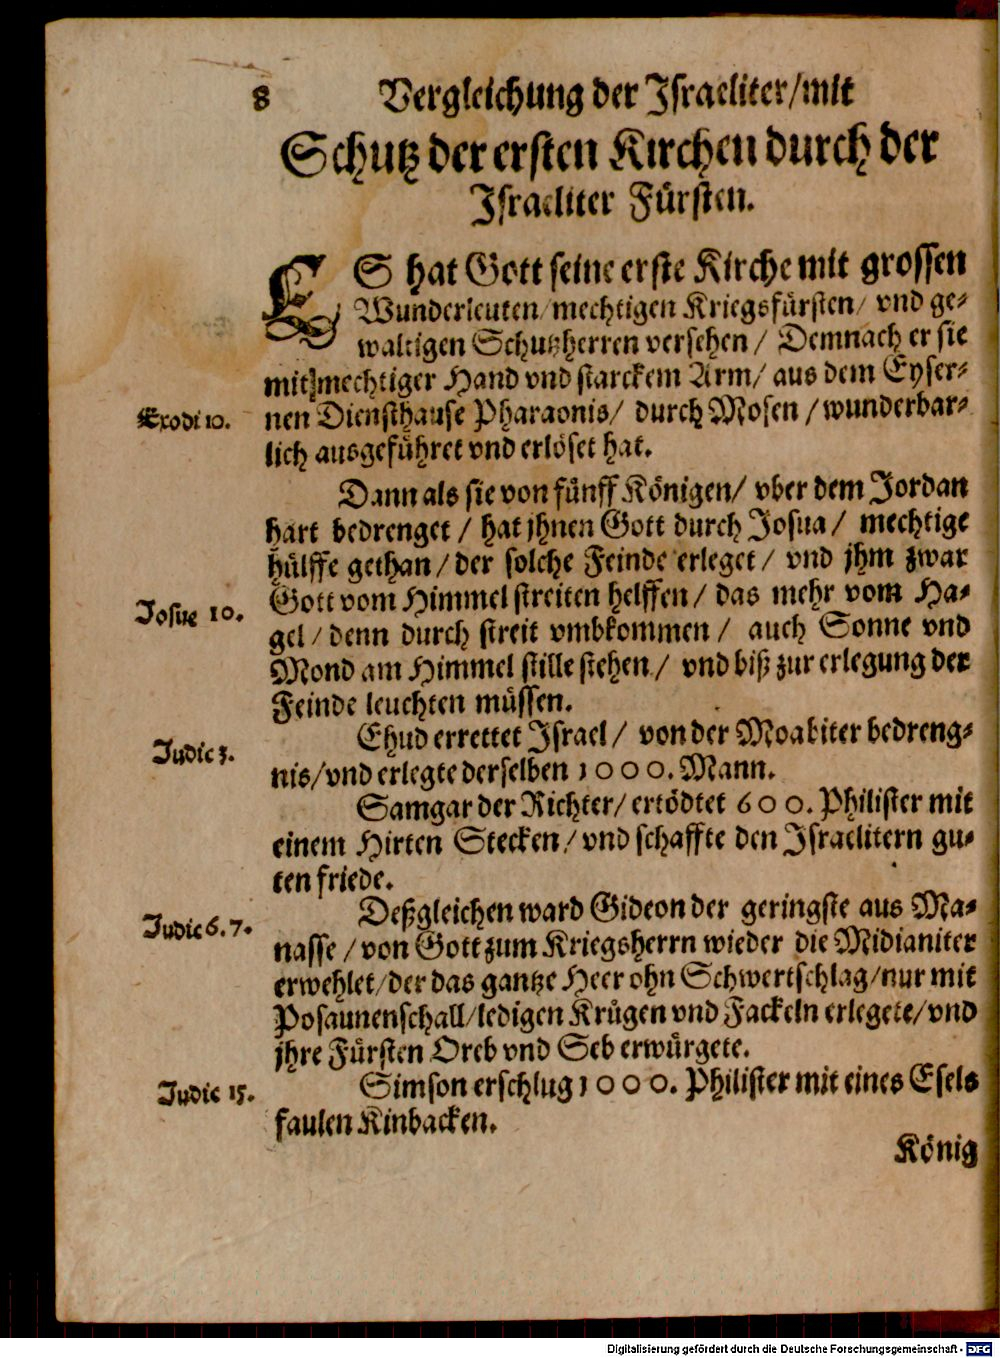 8 Vergleichung der Israeliter/mit
Schutz der ersten Kirchen durch der
Israeliter Fürsten.
ES hat Gott seine erste Kirche mit grossen
Wunderleuten/mechtigen Kriegsfürsten/ vnd ge-
waltigen Schutzherren versehen/ Demnach er sie
mit mechtiger Hand vnd starckem Arm/ aus dem Eyser-
Exodi 10. nen Diensthause Pharaonis/ durch Mosen/wunderbar-
lich ausgeführet vnd erlöset hat.
Dann als sie von fünff Königen/ vber dem Jordan
hart bedrenget/ hat jhnen Gott durch Josua/ mechtige
hülffe gethan/der solche Feinde erleget/ vnd jhm zwar
Josue 10. Gott vom Himmel streiten helffen/ das mehr vom Ha-
gel/denn durch streit vmbkommen/ auch Sonne vnd
Mond am Himmel stille stehen/ vnd biß zur erlegung der
Feinde leuchten müssen.
Judic 3. Ehud errettet Israel/ von der Moabiter bedreng-
nis/vnd erlegte derselben 1000. Mann.
Samgar der Richter/ertödtet 600. Philister mit
einem Hirten Stecken/vnd schaffte den Israelitern gu-
ten friede.
Judic 6. 7. Deßgleichen ward Gideon der geringste aus Ma-
nasse/von Gott zum Kriegsherrn wieder die Midianiter
erwehlet/der das gantze Heer ohn Schwertschlag/nur mit
Posaunenschall/ledigen Krügen vnd Fackeln erlegete/vnd
jhre Fürsten Oreb vnd Seb erwürgete.
Judic 15. Simson erschlug 1000. Philister mit eines Esels
faulen Kinbacken.
König
Digitalisierung gefördert durch die Deutsche Forschungsgemeinschaft - DFG